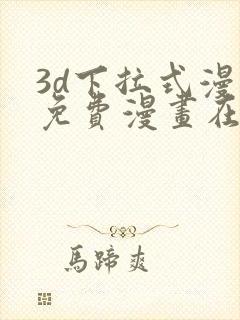 3d下拉式漫
免費漫畫在
馬蹄爽